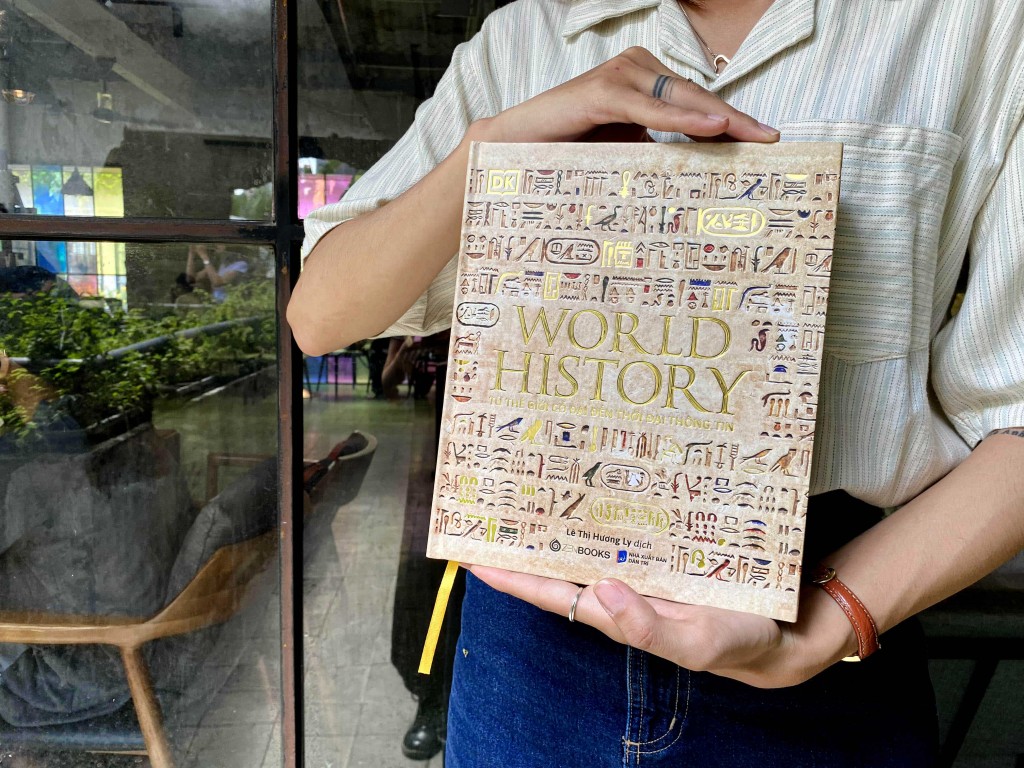 DK
WORLD
HISTORY
TỪ THẾ GIỚI CỔ ĐẠI ĐẾN THỜI ĐẠI THÔNG TIN
Lê Thị Hương Ly dịch
ZENBOOKS
NHÀ XUẤT BẢN
DÂN TRÍ